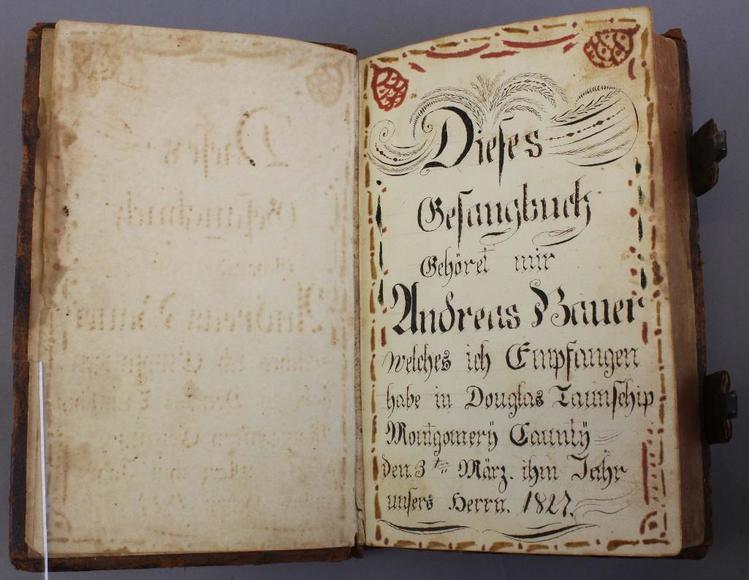 Dieses
Gesangbuch
Gehöret mir
Andreas Bauer
welches ich Empfangen
habe in Douglas Taunschip
Montgomery Caunty
den 3ten März. ihm Jahr
unsers Herrn. 1827.